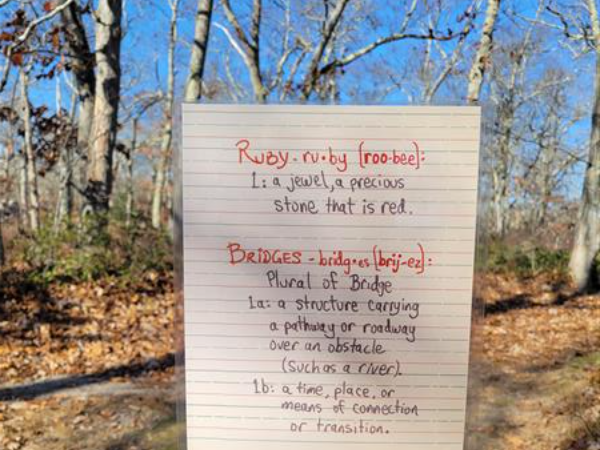 RUBY - ru•by (roo-bee):
1: a jewel, a precious
stone that is red.
BRIDGES - bridg•es (brij-ez):
Plural of Bridge
1a: a structure carrying
a pathway or roadway
over an obstacle
(such as a river).
1b: a time, place, or
means of connection
or transition.